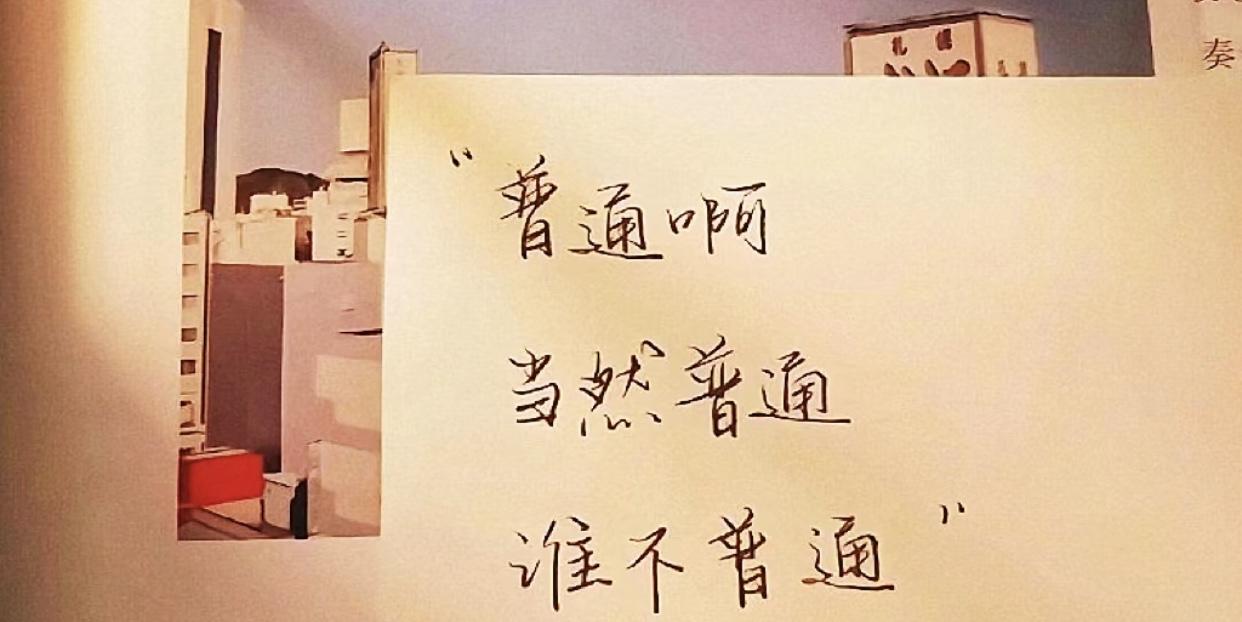 奏
札幌
“普通啊
当然普通
谁不普通”